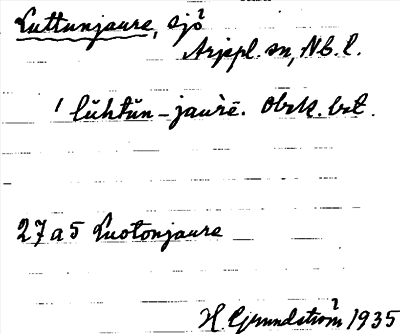 Luttunjaure, sjö
Arjepl. sn, Nb. l.
' lŭhtŭn-jaùrē. Obsk. bet.
27 a 5 Luotonjaure
H Grundström 1935